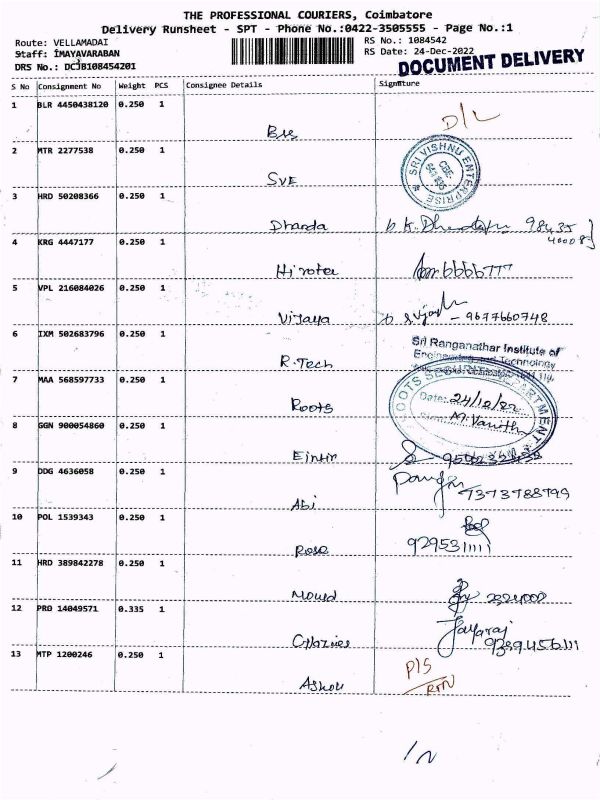 THE PROFESSIONAL COURIERS, Coimbatore
Delivery Runsheet - SPT - Phone No.:0422-3505555 - Page No.:1
Route: VELLAMADAI
Staff: IMAYAVARABAN
DRS No.: DCJB108454201
RS No.: 1084542
RS Date: 24-Dec-2022
DOCUMENT DELIVERY
S No Consignment No Weight PCS Consignee Details Signature
1 BLR 4450438120 0.250 1
D/L
2 MTR 2277538 0.250 1 SVE
SRI VISHNU ENTERPRISE
CBE
641 035
3 HRD 50208366 0.250 1 Dharda
98435
4 KRG 4447177 0.250 1 Hirotec
5 VPL 216084026 0.250 1 Vijaya
9677660748
6 IXM 502683796 0.250 1 R.Tech
Sri Ranganathar Institute of
Engineering and Technology
7 MAA 568597733 0.250 1 Roots
ROOTS SECURITY DEPARTMENT
Date: 24/12/22
M. Vanitha
8 GGN 900054860 0.250 1
9 DDG 4636058 0.250 1 Abi
7373788799
10 POL 1539343 0.250 1 Rose
9295311111
11 HRD 389842278 0.250 1
12 PRO 14049571 0.335 1
Jayaraj
13 MTP 1200246 0.250 1 Ashok
P/S
RTN